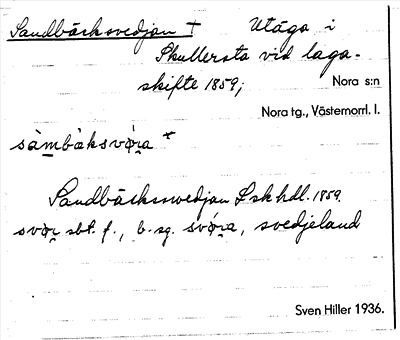 Sandbäcksvedjan † Utäga i
Skullersta vid laga-
skifte 1859;
Nora s:n
Nora tg., Västernorrl. l.
sàmbàksvø̀ra *
Sandbäckssvedjan Lskhdl. 1859.
svør sbt. f., b. sg. svǿra, svedjeland
Sven Hiller 1936.